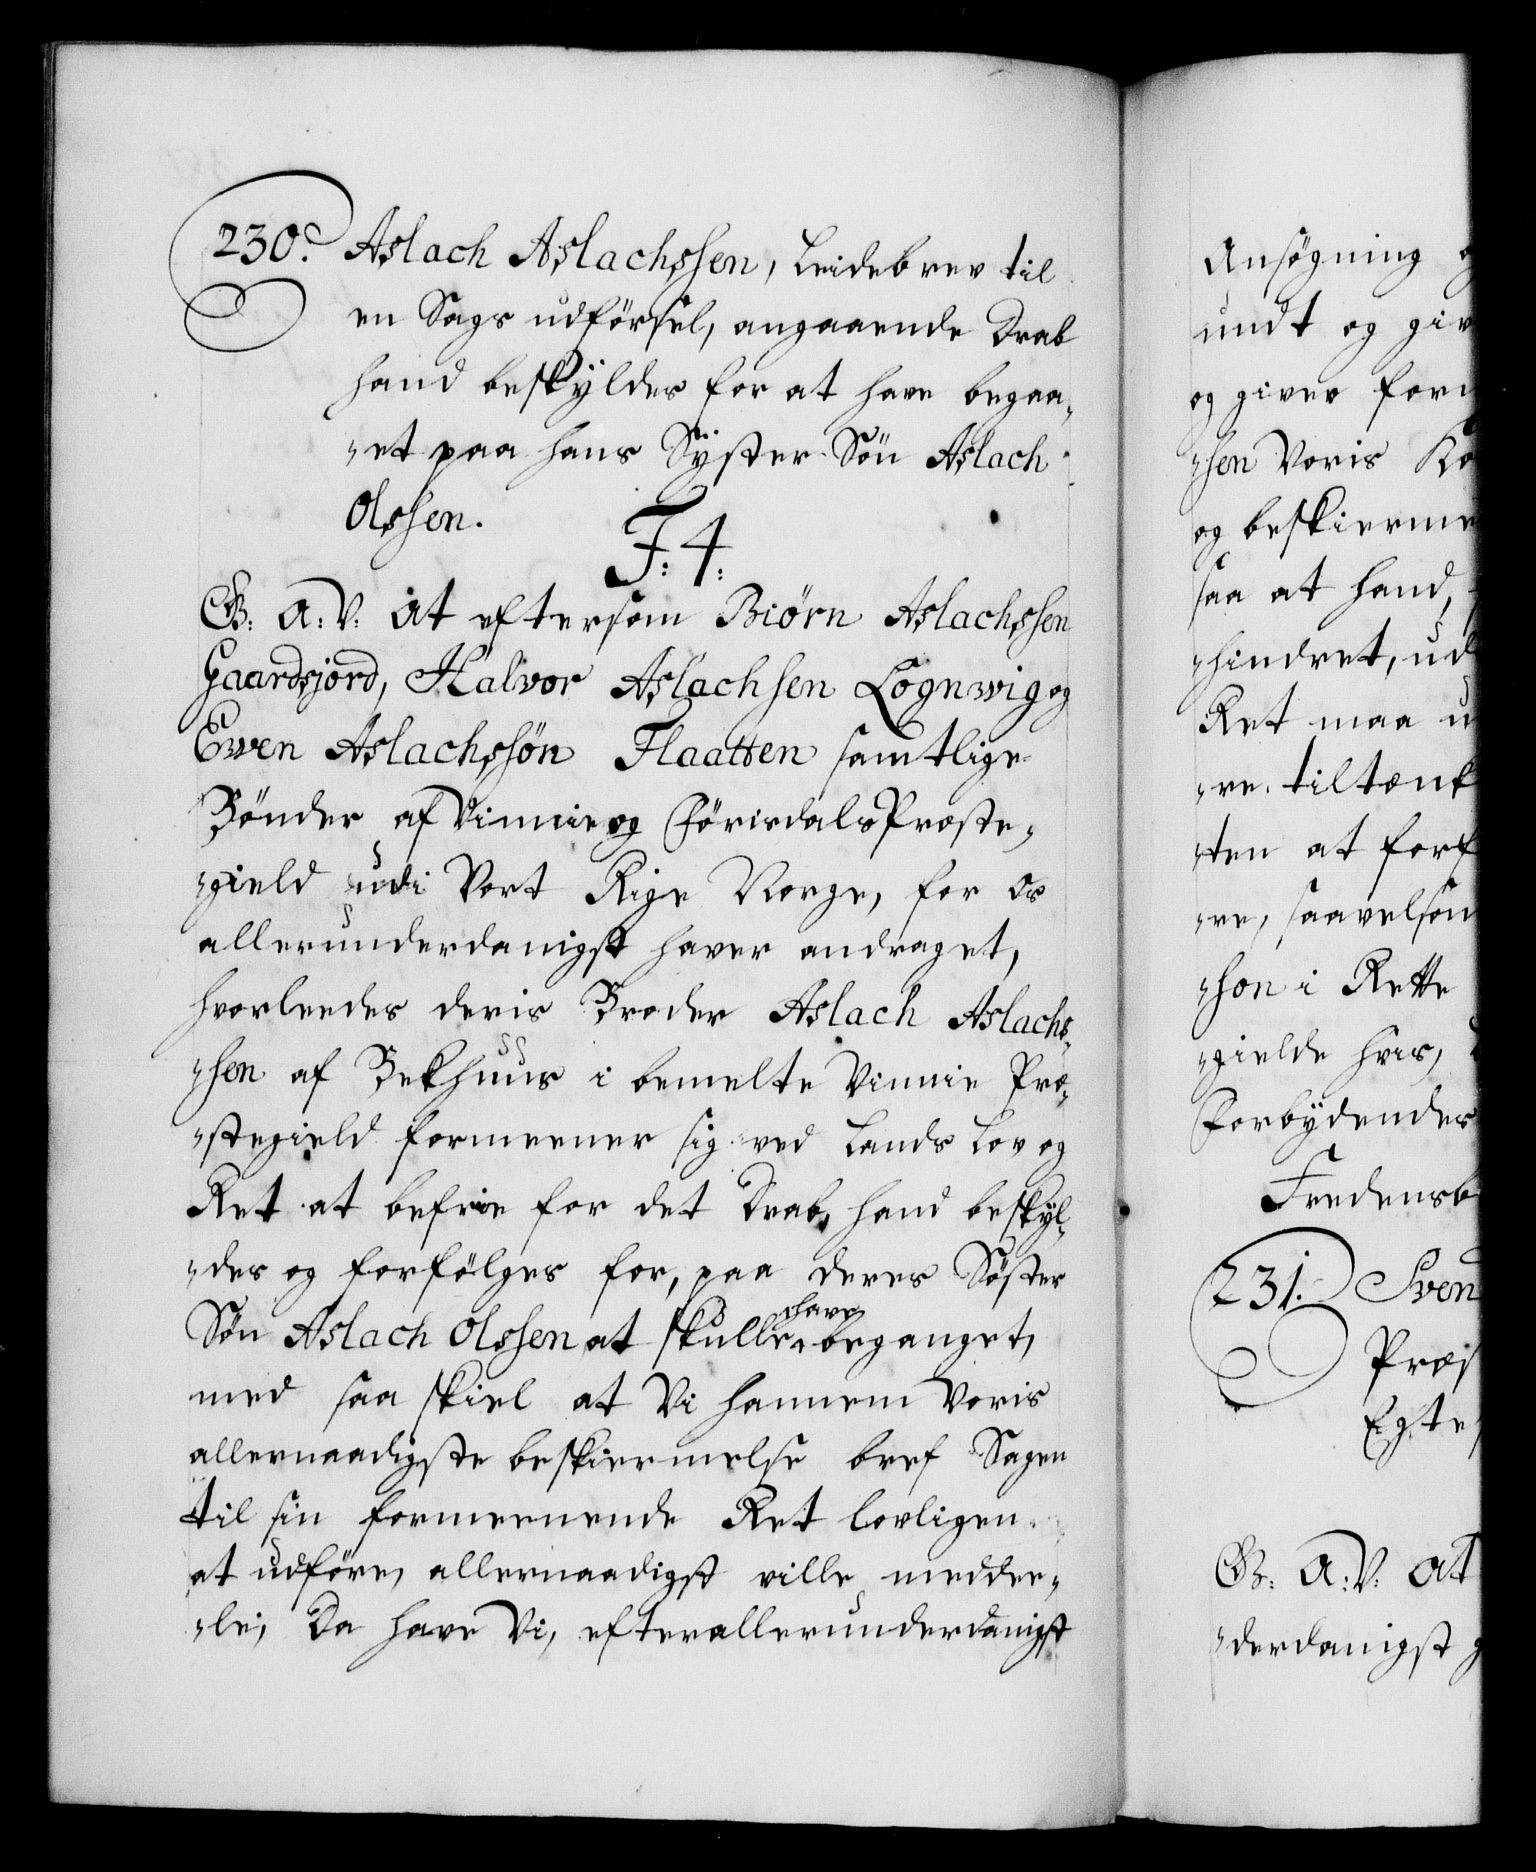 230. Aslach Aslachssen, Leidebrev til
en Sags udförsel, angaaende Drab
hand beskÿldes for at have begaa-
-et paa hans Sÿster Søn Aslach
Olssen.
F: 4:
G: A: V: At eftersom Biørn Aslachssen
Gaardsjord, Halvor Aslachsen Lognwig og
Ewen Aslachssøn Flaatten samtlige
Bønder af Vinnie og Hvirisdals Præste-
-gield udi Vort Rige Norge, for os
allerunderdanigst haver andraget,
hvorleedes deris Broder Aslach Aslachs-
-sen af Bekhuus i bemelte Vinnie Præ-
-stegield formeener sig ved Lands Lov og
Ret at befrie for det Drab, hand beskÿl-
-des og forfølges for, paa deres Søster
Søn Aslach Olssen at skulle have beganget,
med saa skiel at Vi hannem Voris
allernaadigste beskiermelse bref Sagen
til sin formeenende Ret lovligen
at udføre, allernaadigst ville meddee-
-le; Da have Vi, efter allerunderdanigst
Ansögning og
undt og giv
og giver form
-sen Voris Ko
og beskierme
saa at hand,
-hindret, ud
Ret maa u
-re tiltænk
-ten at forf
-re, saavelsom
-son i Rette
-gielde hvis,
Forbÿdendes
Fredensb
231. Sven
Præs
Egte
G: A: V: At
-derdanigst g